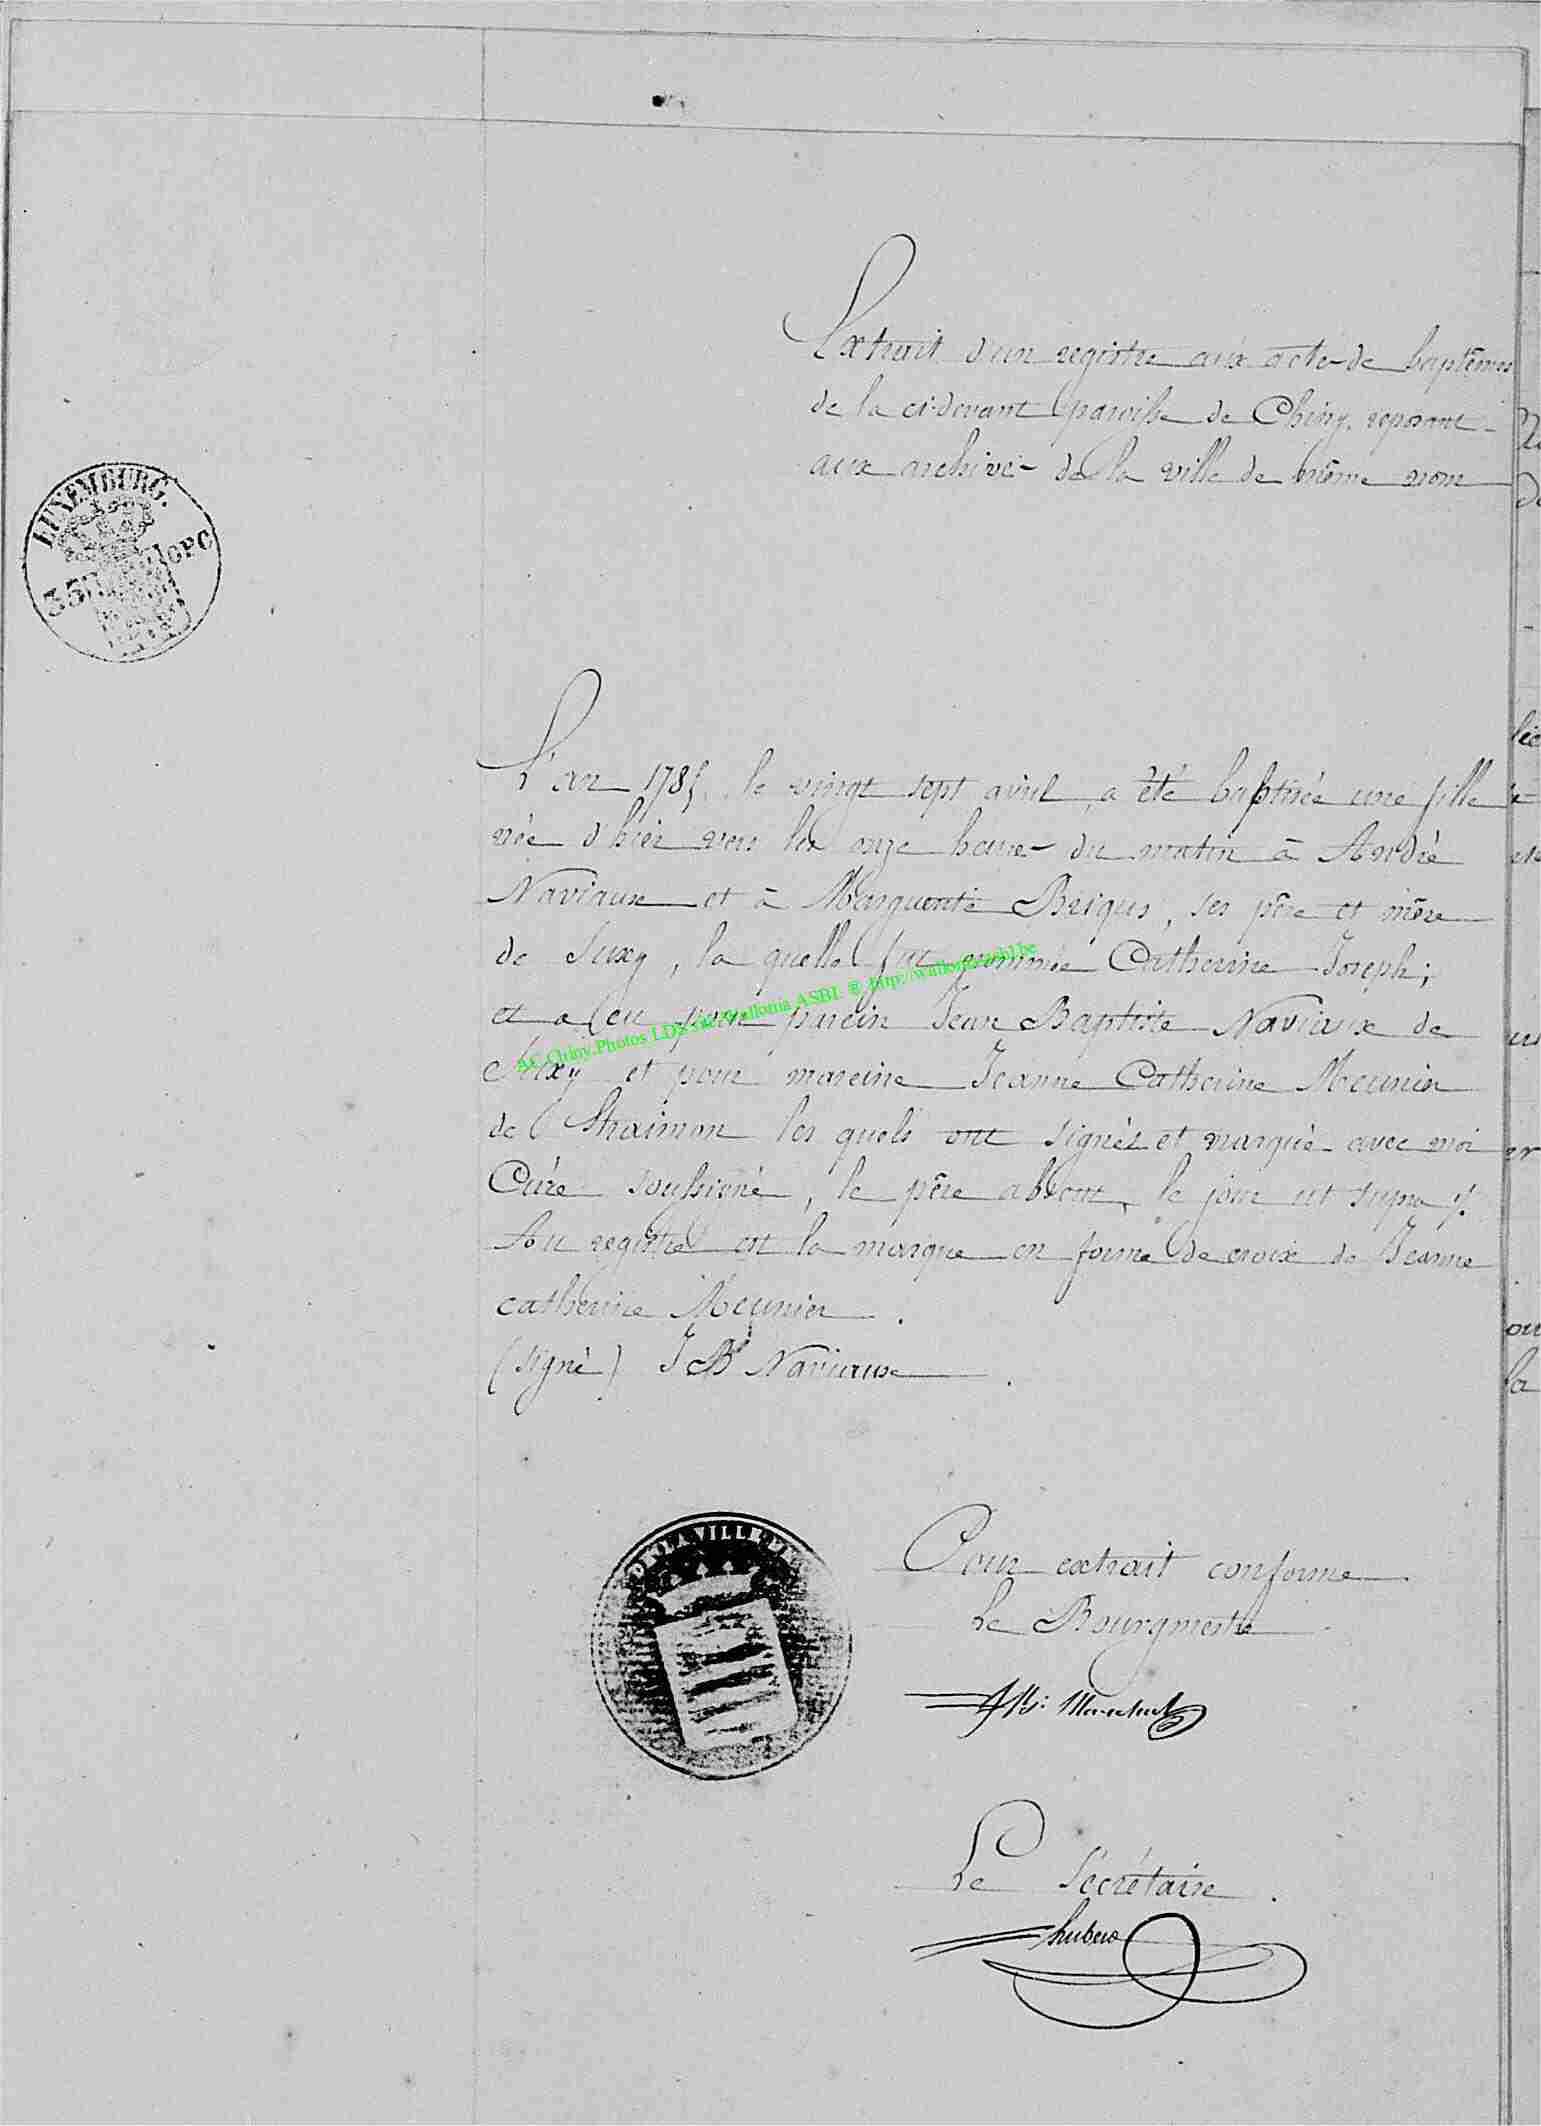 Extrait d'un registre aux acte de baptêmes
de la ci-devant paroisse de Chiny, reposant
aux archives de la ville de même nom
LUXEMBURG.
35
OPC
L'an 1785, le vingt sept avril, a été baptisée une fille
née d'hier vers les onze heure du matin à André
Naviaux et à Marguerite Briquis, ses père et mère
de Suxy, la quelle fut nommée Catherine Joseph;
et a eu pour parein Jean Baptiste Naviaux de
Suxy et pour mareine Jeanne Catherine Meunier
de Straimon les quels ont signés et marqué avec moi
Curé soussigné, le père absent, le jour ut supra
Au registre est la marque en forme de croix de Jeanne
catherine Meunier.
(signé) J Bte Naviaux.
AC.Chiny.Photos LDS Wallonia ASBL ® http://
DE LA VILLE DE
Pour extrait conforme
Le Bourgmestre
Marechal
Le Sécrétaire.